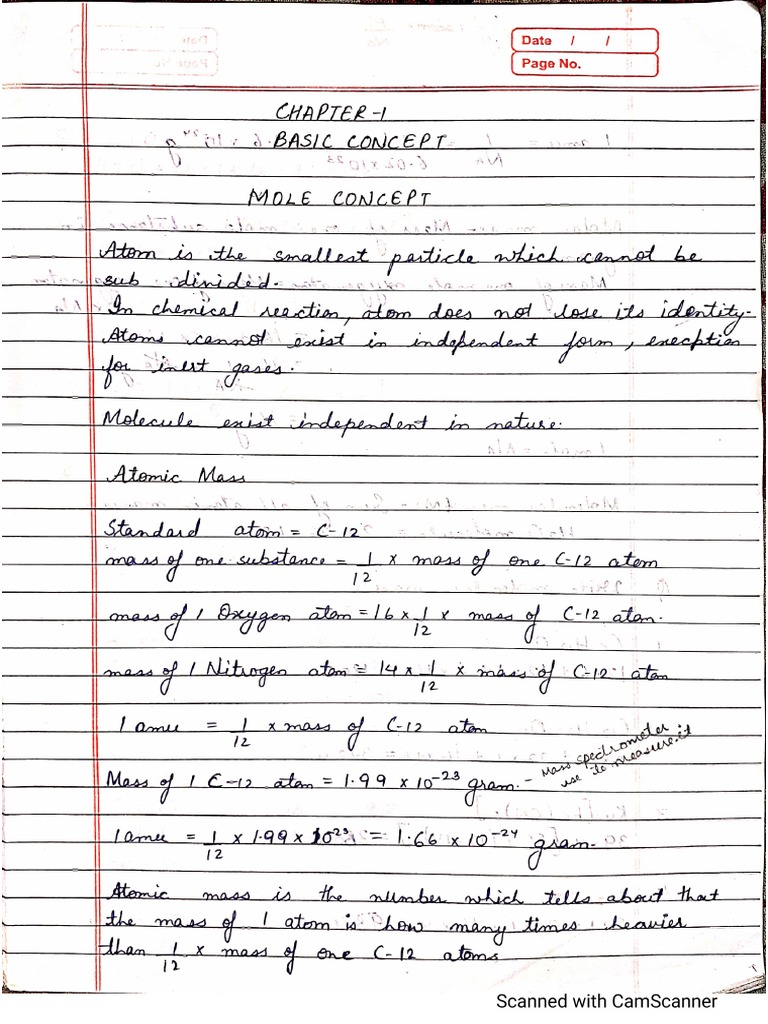 Date / /
Page No.
CHAPTER-1
BASIC CONCEPT
MOLE CONCEPT
Atom is the smallest particle which cannot be
sub divided.
In chemical reaction, atom does not lose its identity.
Atoms cannot exist in independent form, execption
for inert gases.
Molecule exist independent in nature.
Atomic Mass
Standard atom = C-12
mass of one substance = 1/12 × mass of one C-12 atom
mass of 1 Oxygen atom = 16 × 1/12 × mass of C-12 atom.
mass of 1 Nitrogen atom = 14 × 1/12 × mass of C-12 atom
1 amu = 1/12 × mass of C-12 atom
Mass of 1 C-12 atom = 1.99 × 10⁻²³ gram. - Mass spectrometer
use to measure it
1 amu = 1/12 × 1.99 × 10²³ = 1.66 × 10⁻²⁴ gram.
Atomic mass is the number which tells about that
the mass of 1 atom is how many times heavier
than 1/12 × mass of one C-12 atoms
Scanned with CamScanner